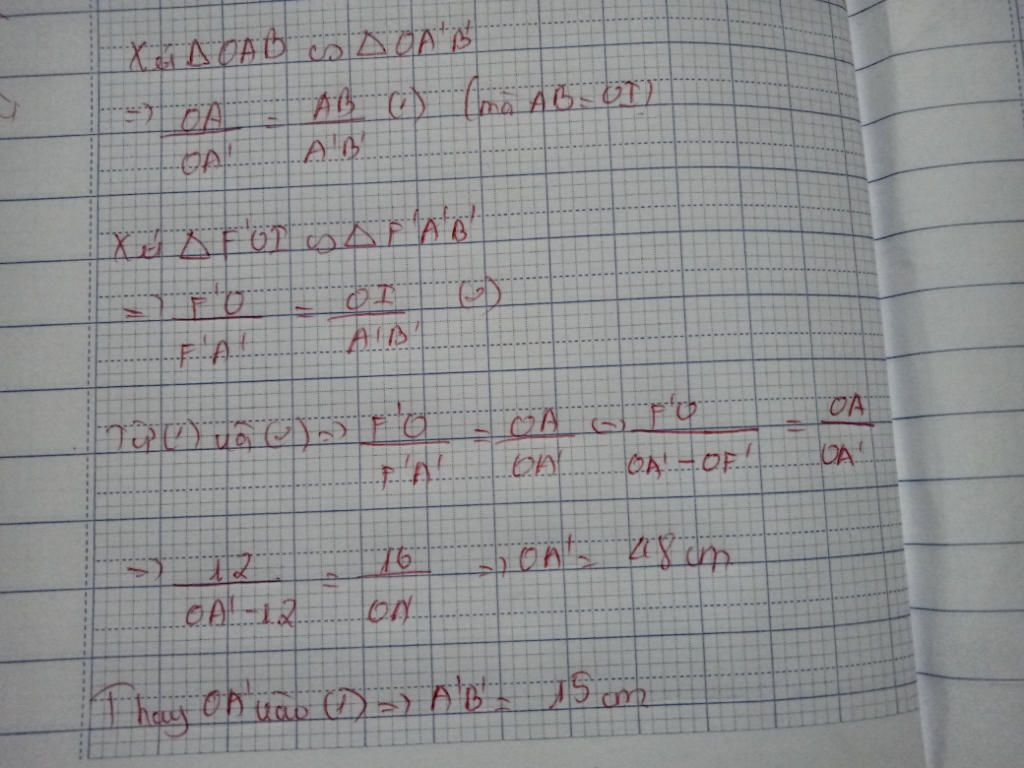 Xét ΔOAB ∽ ΔOA'B'
=> OA/OA' = AB/A'B' (1) (mà AB = OI)
Xét ΔF'OI ∽ ΔF'A'B'
=> F'O/F'A' = OI/A'B' (2)
Từ (1) và (2) => F'O/F'A' = OA/OA' <=> F'O/OA' - OF' = OA/OA'
=> 12/OA' - 12 = 16/OA' => OA' = 48 cm
Thay OA' vào (1) => A'B' = 15 cm